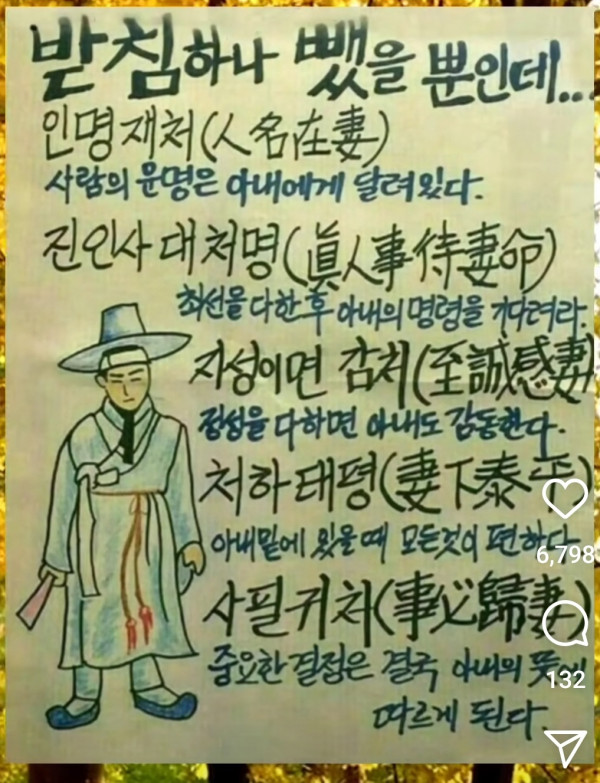 받침하나 뺐을 뿐인데...
인명재처(人名在妻)
사람의 운명은 아내에게 달려있다.
진인사대처명(眞人事待妻命)
최선을다한후 아내의 명령을 기다려라.
지성이면 감처(至誠感妻)
정성을 다하면 아내도 감동한다.
처하태평(妻下泰平)
아내밑에 있을때 모든것이 편하다
사필귀처(事必歸妻)
중요한결정은 결국 아내의 뜻에
따르게 된다.
6,798
132